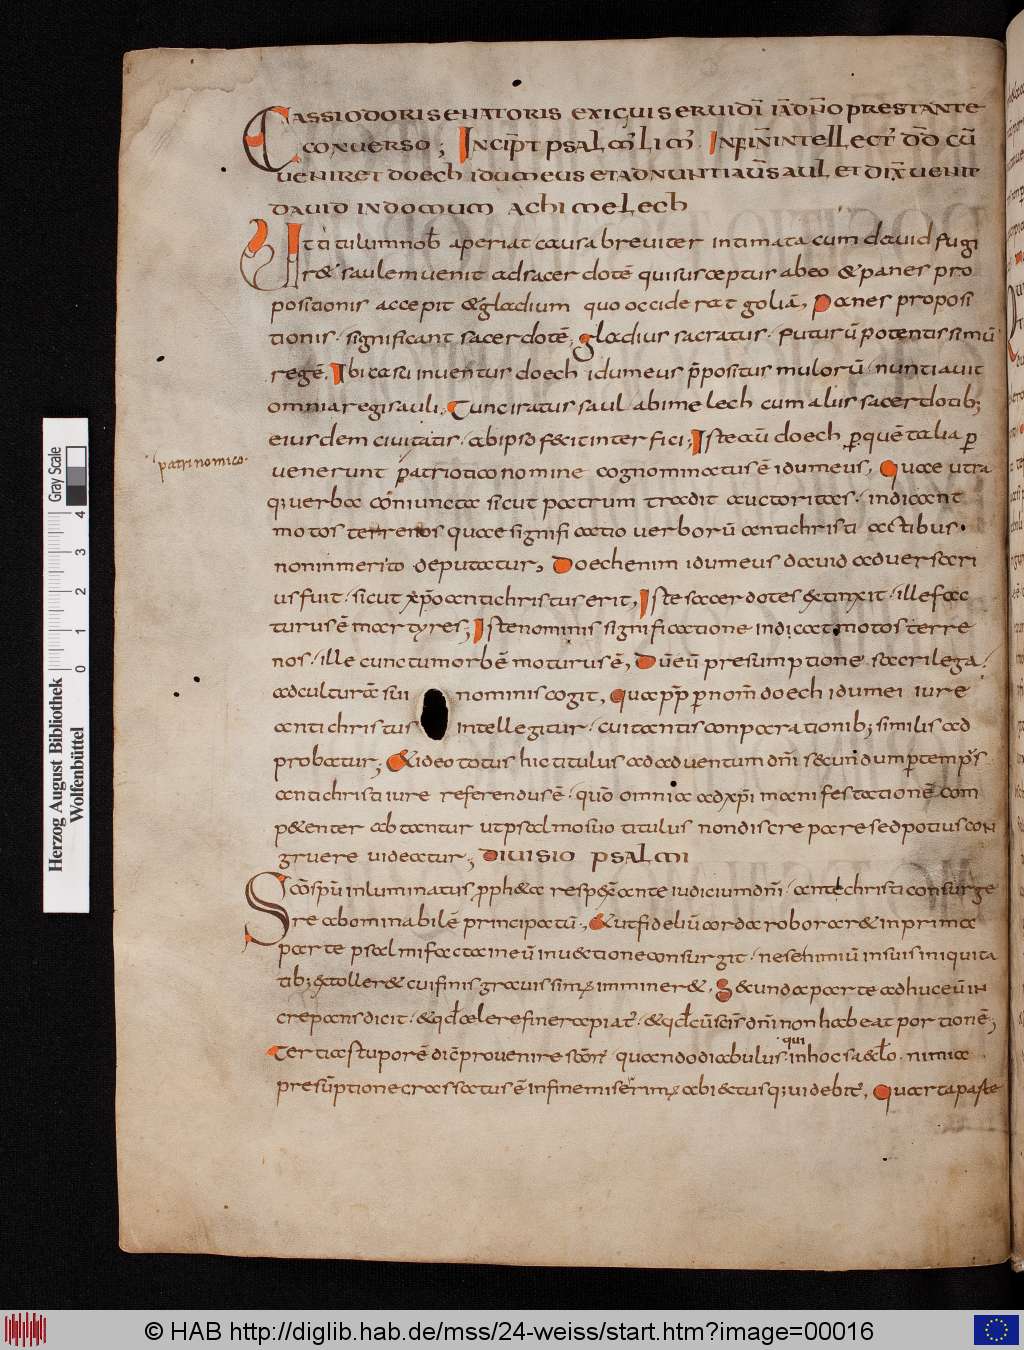 CASSIODORI SENATORIS EXIGUI SERUI DĪ IĀ DÑO PRESTANTE
CONUERSO; INCIP̄T PSALM̄ LIM̄ IN FINĒ INTELLECT' DD̄ CŪ
UENIRET DOECH IDUMEUS ET ADNUNTIAU̅ SAUL ET DIX̄ UENIT
DAUID IN DOMUM ACHIMELECH
Ut titulum nob̄ aperiat causa breviter intimata cum dauid fugi
ret saulem venit ad sacerdotē qui susceptus ab eo & panes pro
positionis accepit & gladium quo occiderat goliā, Panes proposi
tionis significant sacerdotē, gladius sacratus futurū potentissimū
regē. Ibi casu inventus doech idumeus p̄positus mulorū nuntiavit
omnia regi sauli, Tunc iratus saul abimelech cum aliis sacerdotib;
eiusdem civitatis ab ipso fecit interfici; Iste aū doech p̱ quē talia p̱
venerunt patriotico nomine cognominatus ē idumeus, Quae utra
q; verba cōniuncta sicut patrum tradit auctoritas indicant
patrinomico
motos terrenos quae significatio verborū antichristi actibus
non inmerito deputatur, Doech enim idumeus dauid adversari
us fuit sicut x̄po antichristus erit, Iste sacerdotes extinxit ille fac
turus ē martyres; Iste nominis significatione indicat motos terre
nos ille cunctum orbē moturus ē, Dū eū presumptione sacrilega
ad culturā sui nominis cogit, Quapp̄ p̱ nom̄ doech idumei iure
antichristus intellegitur cui tantis conparationib; similis ad
probatur; Et ideo totus hic titulus ad adventum dn̄i secundum p̱ temp's
antichristi iure referendus ē quō omnia ad x̄pi manifestationē com
petenter abtantur ut psalmo suo titulus non discrepare sed potius con
gruere videatur; DIUISIO PSALMI
Scō sp̄ū inluminatus proph&a respic̄ ante iudicium dn̄i antechristi consurge
re abominabilē principatū, Et ut fideliū corda roborar& in prima
parte psalmi facta in eū invectione consurgit ne se nimiū in suis iniquita
tib; extoller& cui finis gravissim; imminer&. Secunda parte adhuc eū in
crepans dicit & qd̄ celere fine rapiat' & qd̄ cū scīs dn̄i non habeat portionē;
Tertia stuporē dic̄ provenire scōr' quando diabulus qui in hoc saeclo nimia
presūptione crassatus ē in fine miserrim; abiectusq; videbit', Quarta parte
Gray Scale
4
3
2
1
0
Herzog August Bibliothek
Wolfenbüttel
© HAB http://diglib.hab.de/mss/24-weiss/start.htm?image=00016